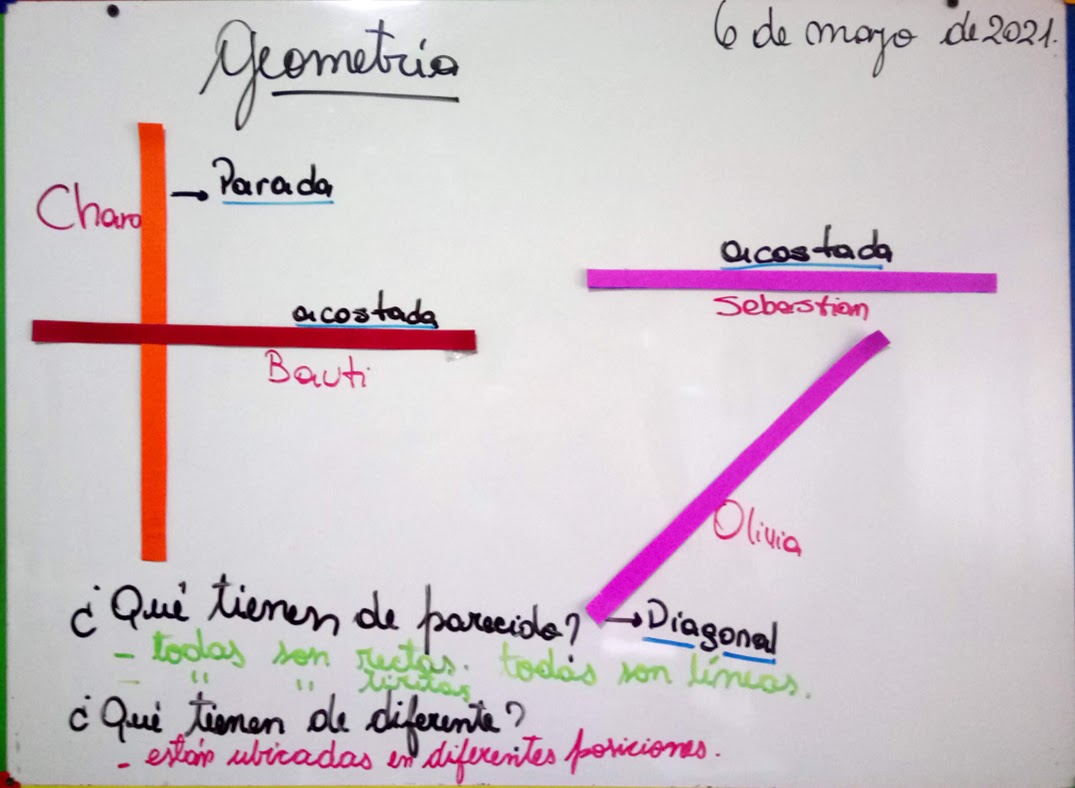 Geometría
6 de mayo de 2021.
Charo
→ Parada
acostada
Bauti
acostada
Sebastian
Olivia
¿Qué tienen de parecido?
→ Diagonal
- todas son rectas. todas son líneas.
- " " tiritas
¿Qué tienen de diferente?
- están ubicadas en diferentes posiciones.